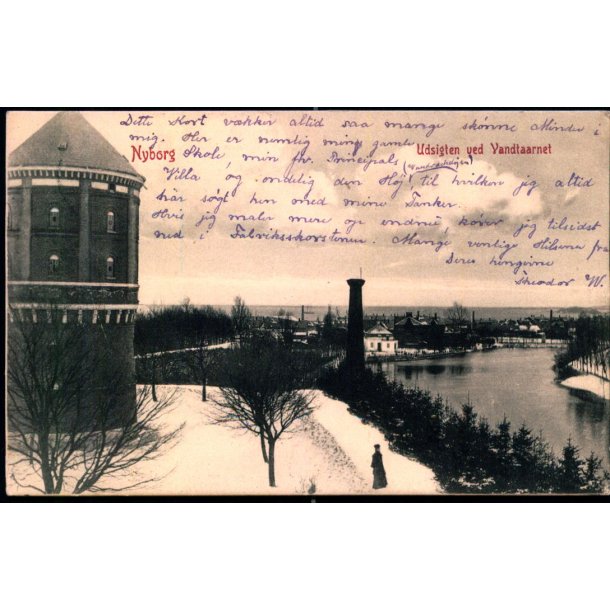 Dette Kort vækker altid saa mange skønne Minder i
mig. Her er nemlig min gamle
Nyborg
Udsigten ved Vandtaarnet
Skole, min fr. Principals
Villa og endelig den Høj til hvilken jeg altid
har søgt hen med mine Tanker.
Hvis jeg maler mere op endnu, kører jeg tilsidst
ned i Fabriksskorstenen. Mange venlige Hilsener fra
Deres hengivne
Theodor W.